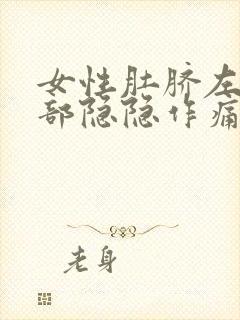 女性肚脐左
部隐隐作痛
老身